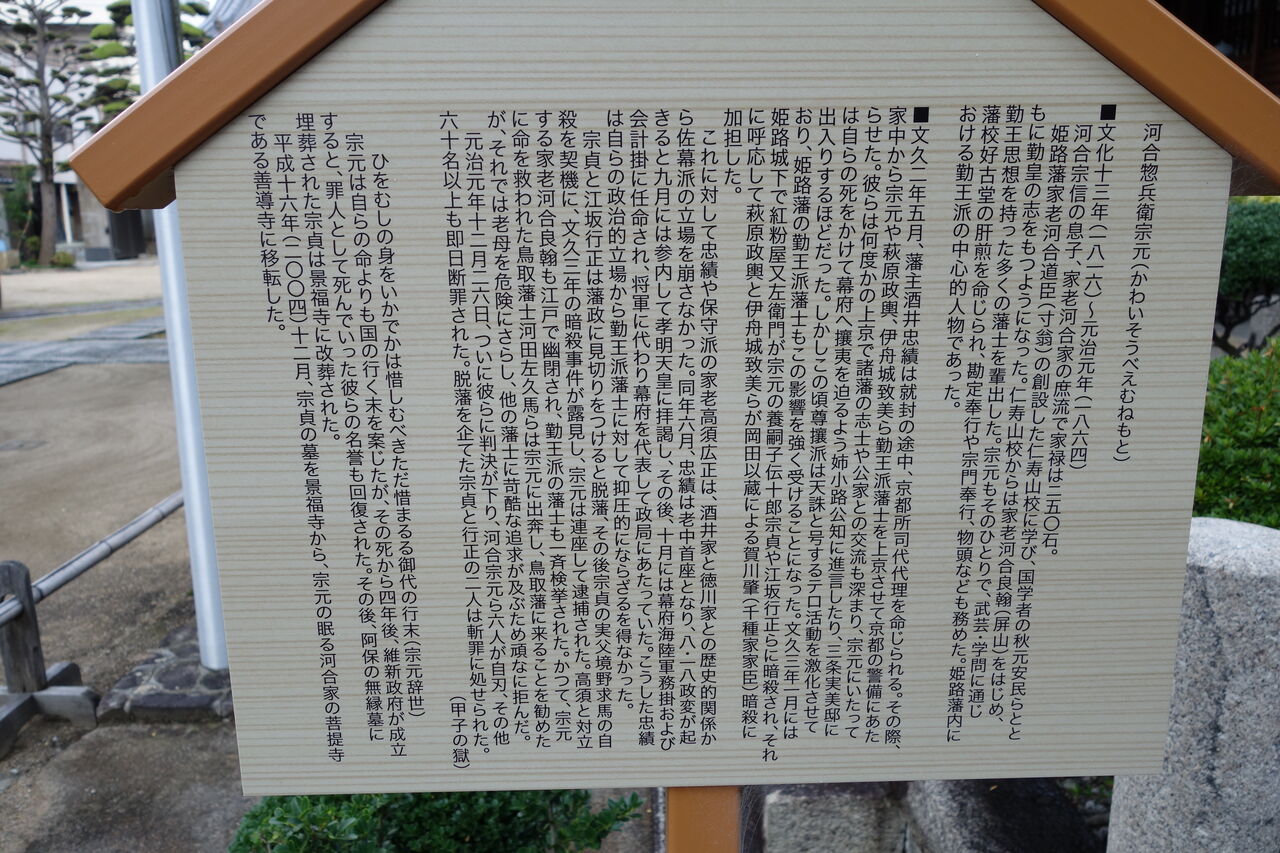 河合惣兵衛宗元（かわいそうべえむねもと）
■文化十三年（一八一六）～元治元年（一八六四）
河合宗信の息子、家老河合家の庶流で家禄は二五〇石。
姫路藩家老河合道臣（寸翁）の創設した仁寿山校に学び、国学者の秋元安民らとと
もに勤皇の志をもつようになった。仁寿山校からは家老河合良翰（屏山）をはじめ、
勤王思想を持った多くの藩士を輩出した。宗元もそのひとりで、武芸・学問に通じ
藩校好古堂の肝煎を命じられ、勘定奉行や宗門奉行、物頭なども務めた。姫路藩内に
おける勤王派の中心的人物であった。
■文久二年五月、藩主酒井忠績は就封の途中、京都所司代代理を命じられる。その際、
家中から宗元や萩原政興、伊舟城致美ら勤王派藩士を上京させて京都の警備にあた
らせた。彼らは何度かの上京で諸藩の志士や公家との交流も深まり、宗元にいたって
は自らの死をかけて幕府へ攘夷を迫るよう姉小路公知に進言したり、三条実美邸に
出入りするほどだった。しかしこの頃尊攘派は天誅と号するテロ活動を激化させて
おり、姫路藩の勤王派藩士もこの影響を強く受けることになった。文久三年一月には
姫路城下で紅粉屋又左衛門が宗元の養嗣子伝十郎宗貞や江坂行正らに暗殺され、それ
に呼応して萩原政興と伊舟城致美らが岡田以蔵による賀川肇（千種家家臣）暗殺に
加担した。
これに対して忠績や保守派の家老高須広正は、酒井家と徳川家との歴史的関係か
ら佐幕派の立場を崩さなかった。同年六月、忠績は老中首座となり、八・一八政変が起
きると九月には参内して孝明天皇に拝謁し、その後、十月には幕府海陸軍務掛および
会計掛に任命され、将軍に代わり幕府を代表して政局にあたっていた。こうした忠績
は自らの政治的立場から勤王派藩士に対して抑圧的にならざるを得なかった。
宗貞と江坂行正は藩政に見切りをつけると脱藩、その後宗貞の実父境野求馬の自
殺を契機に、文久三年の暗殺事件が露見し、宗元は連座して逮捕された。高須と対立
する家老河合良翰も江戸で幽閉され、勤王派の藩士も一斉検挙された。かつて、宗元
に命を救われた鳥取藩士河田左久馬らは宗元に出奔し、鳥取藩に来ることを勧めた
が、それでは老母を危険にさらし、他の藩士に苛酷な追求が及ぶため頑なに拒んだ。
元治元年十二月二六日、ついに彼らに判決が下り、河合宗元ら六人が自刃、その他
六十名以上も即日断罪された。脱藩を企てた宗貞と行正の二人は斬罪に処せられた。
（甲子の獄）
ひをむしの身をいかでかは惜しむべきただ惜まるる御代の行末（宗元辞世）
宗元は自らの命よりも国の行く末を案じたが、その死から四年後、維新政府が成立
すると、罪人として死んでいった彼らの名誉も回復された。その後、阿保の無縁墓に
埋葬された宗貞は景福寺に改葬された。
平成十六年（二〇〇四）十二月、宗貞の墓を景福寺から、宗元の眠る河合家の菩提寺
である善導寺に移転した。